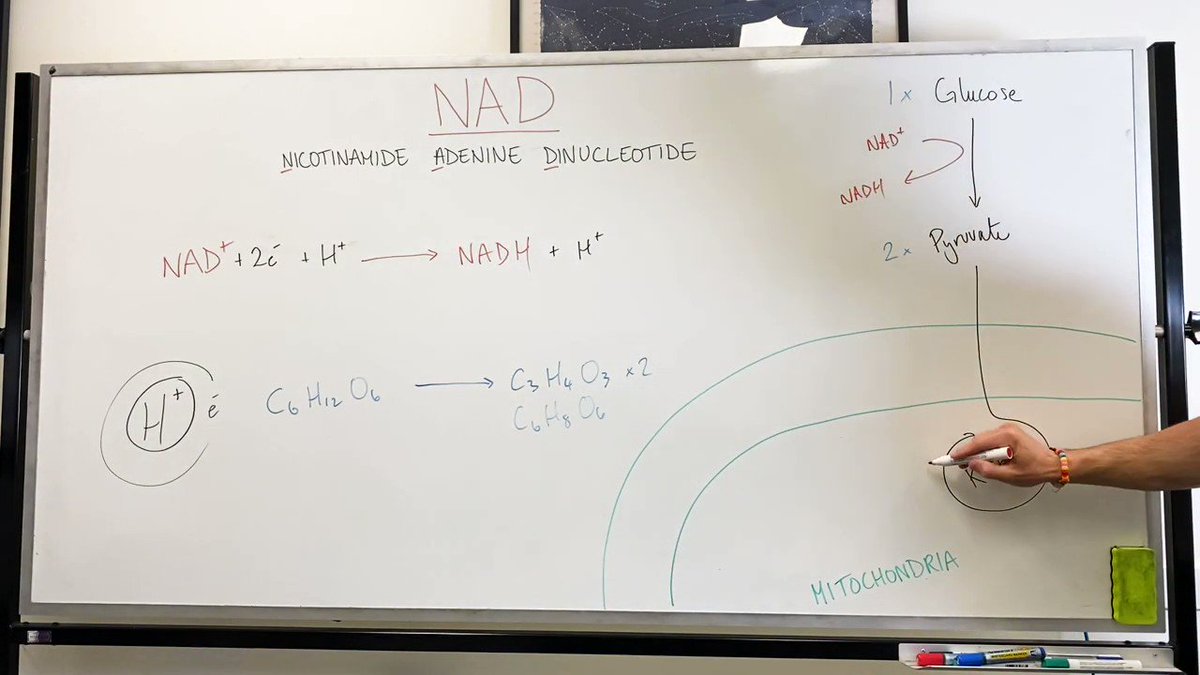 NAD
NICOTINAMIDE ADENINE DINUCLEOTIDE
NAD⁺ + 2é + H⁺ → NADH + H⁺
H⁺ é
C₆H₁₂O₆ → C₃H₄O₃ ×2
C₆H₈O₆
1× Glucose
NAD⁺
NADH
2× Pyruvate
K
MITOCHONDRIA